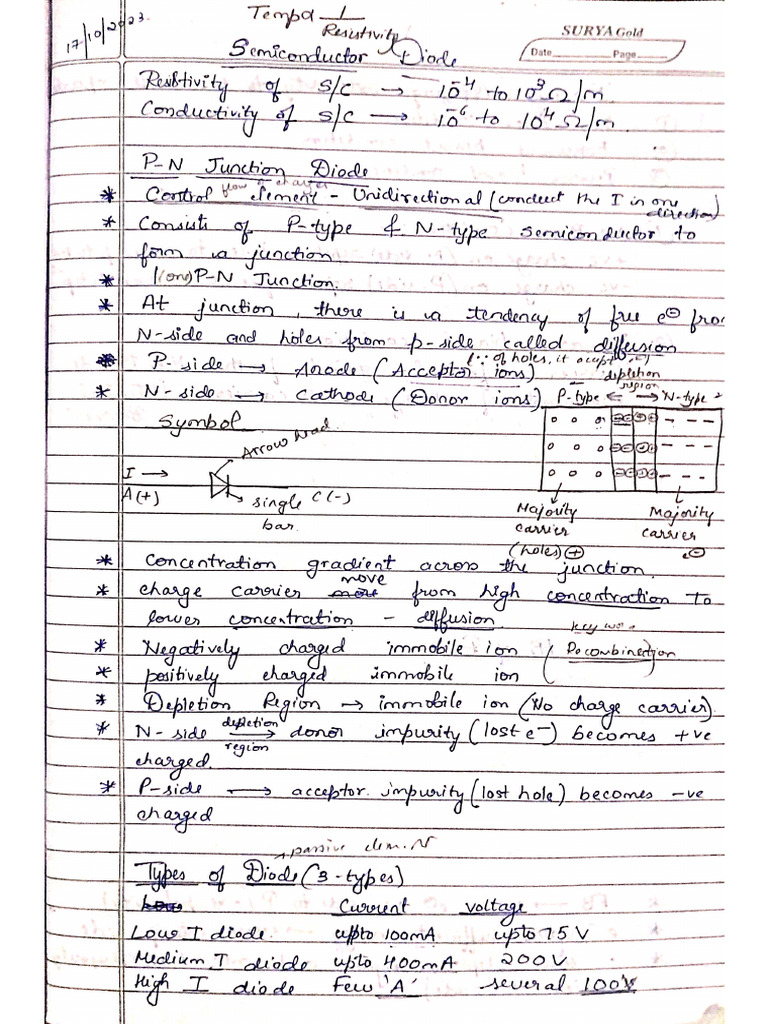 17/10/2023
Temp α 1/Resistivity
SURYA Gold
Date Page
Semiconductor Diode
Resistivity of S/C → 10⁻⁴ to 10³ Ω/m
Conductivity of S/C → 10⁻⁶ to 10⁴ Ω/m
P-N Junction Diode
flow of charges
* Control element - Unidirectional (conduct the I in one direction)
* Consists of P-type & N-type semiconductor to
form a junction
* P-N Junction.
* At junction, there is a tendency of free e⊖ from
N-side and holes from p-side called diffusion
(∵ of holes, it accept
* P-side → Anode (Acceptor ions)
* N-side → Cathode (Donor ions)
depletion region
P-type ← → N-type
Symbol
Arrow head
I →
A(+)
single bar.
C(-)
Majority carrier (holes) ⊕
Majority carrier e⊖
* Concentration gradient across the junction.
* charge carrier move from high concentration to
lower concentration - diffusion
key
* Negatively charged immobile ion (Recombination
* positively charged immobile ion (
* Depletion Region → immobile ion (No charge carrier).
* N-side depletion region → donor impurity (lost e⁻) becomes +ve
charged.
* P-side → acceptor impurity (lost hole) becomes -ve
charged
passive
Types of Diode (3-types)
Current voltage
Low I diode. upto 100mA upto 75 V
Medium I diode upto 400mA 200V
High I diode Few 'A' several 100V